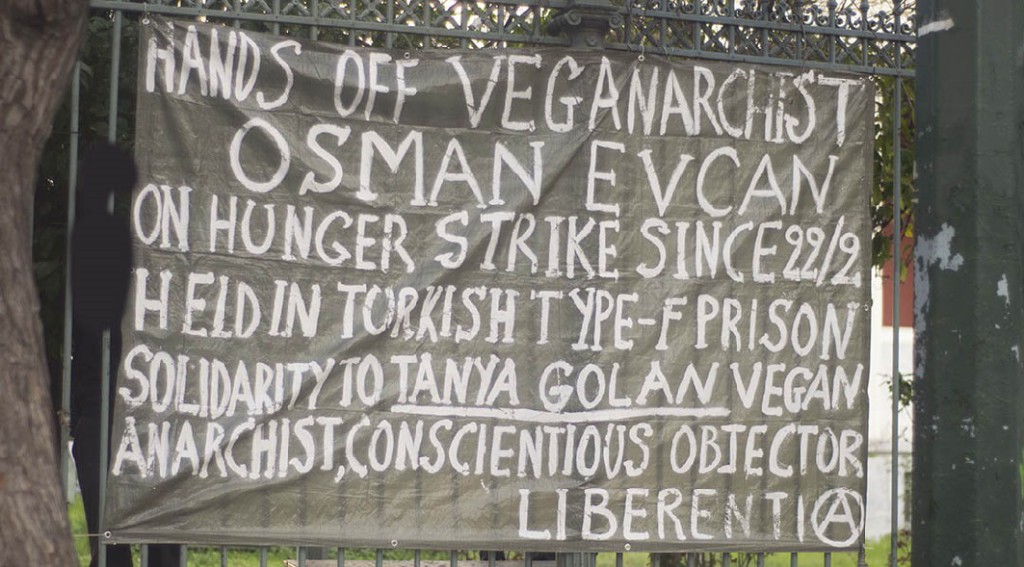 HANDS OFF VEGANARCHIST
OSMAN EVCAN
ON HUNGER STRIKE SINCE 22/2
HELD IN TURKISH TYPE-F PRISON
SOLIDARITY TO TANYA GOLAN VEGAN
ANARCHIST, CONSCIENTIOUS OBJECTOR
LIBERENTIⒶ